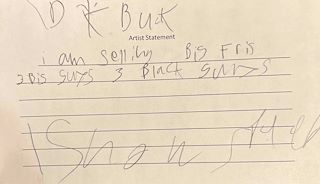 DR Buck
Artist Statement
i am selling Big Fris
2 Big guys 3 Black guys
Show